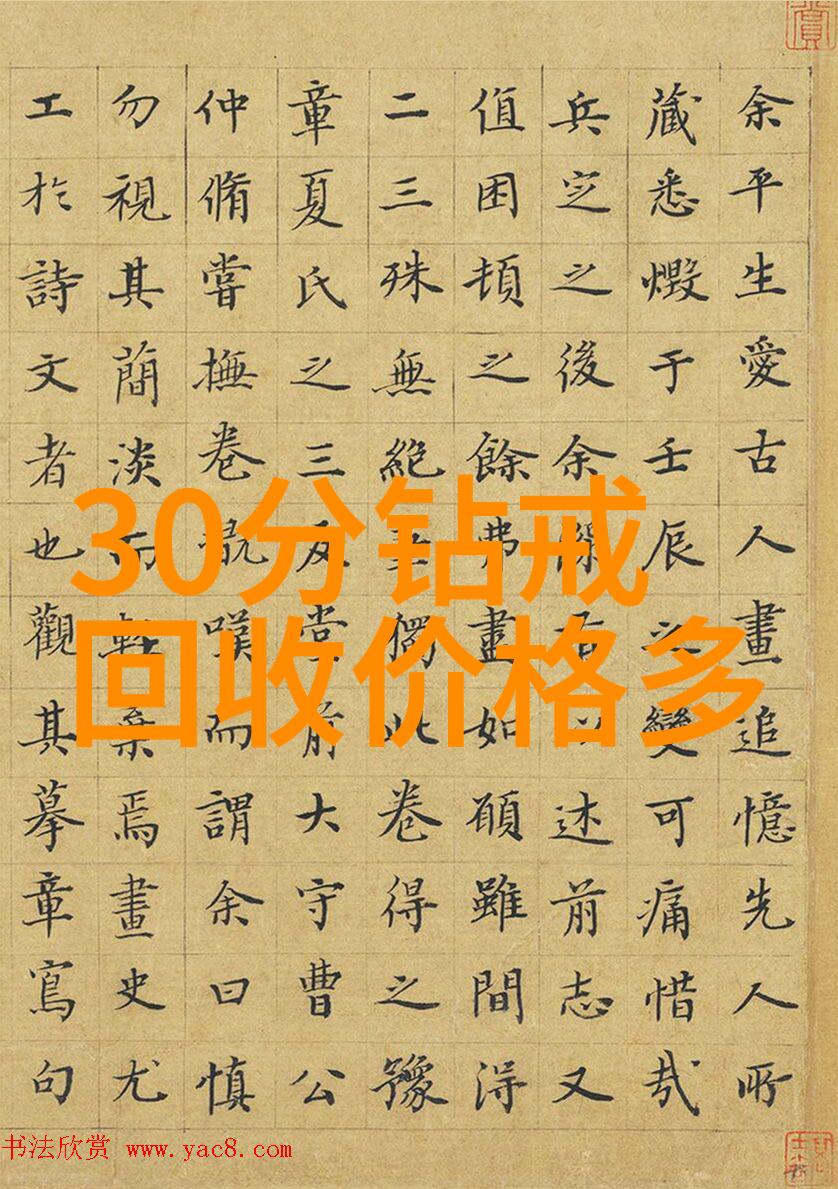 余平生愛古人畫追憶先人所
藏悉燬于壬辰之變可痛惜哉
兵定之後余述前志又
值困頓之餘弗盡如願雖間得
二三殊無絕獨此卷得之豫
章夏氏之三反堂前大守曹公
仲脩嘗撫卷嘆而謂余曰慎
勿視其簡淡而輕棄焉畫史尤
工於詩文者也觀其摹章寫句
30分钻戒
回收价格多
书法欣赏 www.yac8.com